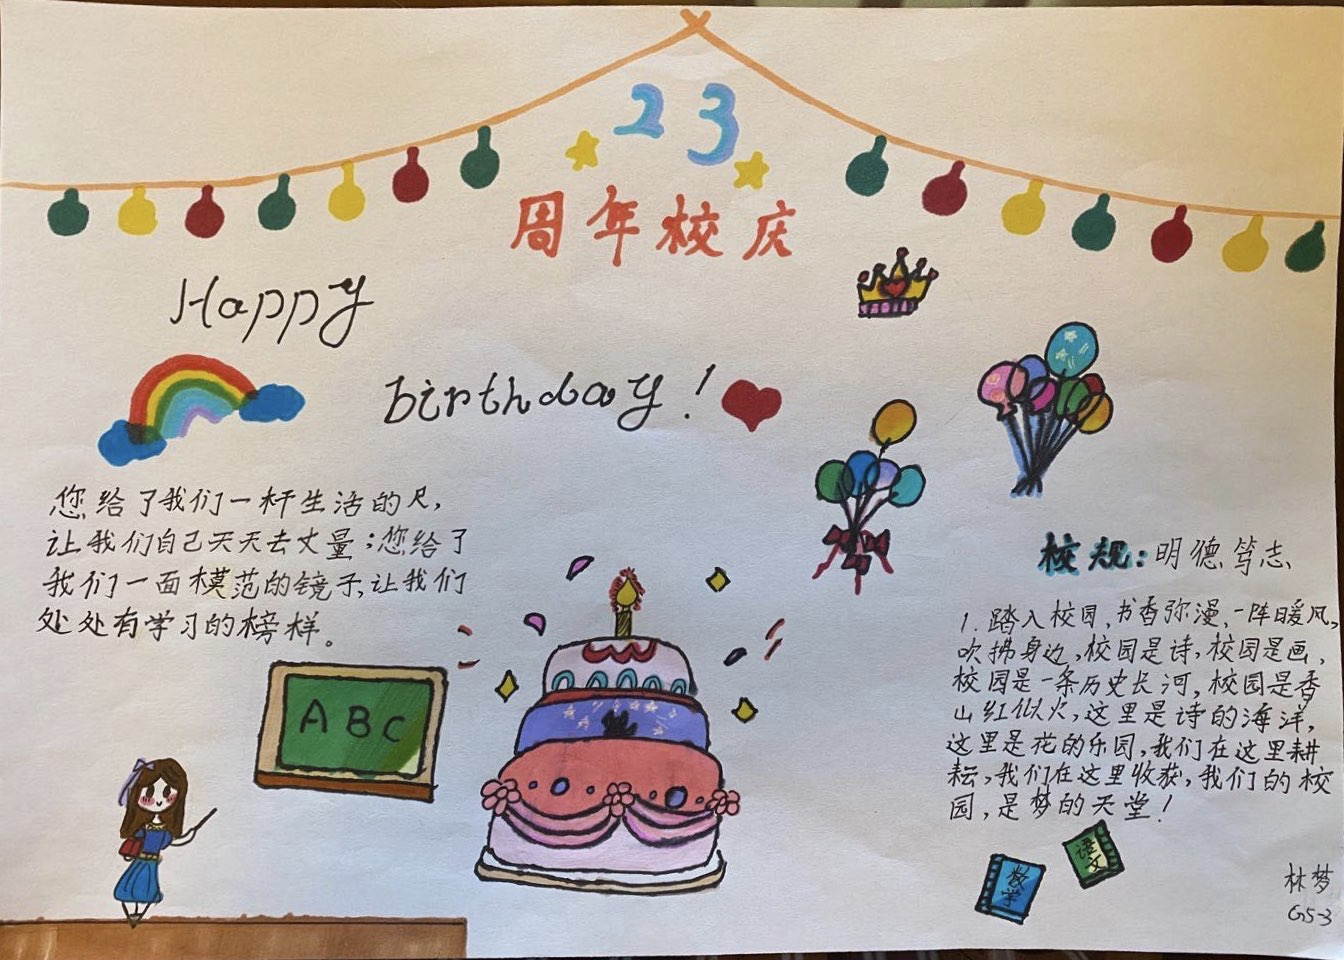 23
周年校庆
Happy
birthday!
您给了我们一杆生活的尺,
让我们自己天天去丈量;您给了
我们一面模范的镜子,让我们
处处有学习的榜样。
ABC
校规:明德笃志、
1.踏入校园,书香弥漫,一阵暖风,
吹拂身边,校园是诗,校园是画,
校园是一条历史长河,校园是香
山红似火,这里是诗的海洋,
这里是花的乐园,我们在这里耕
耘,我们在这里收获,我们的校
园,是梦的天堂!
语文
数学
林梦
G5-3